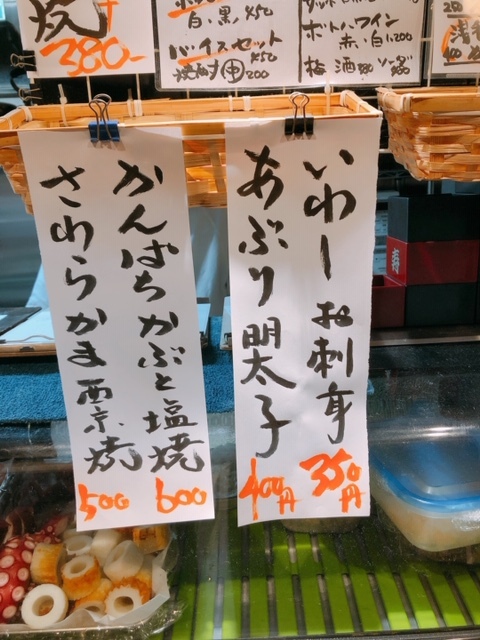 焼
380-
白・黒 450
バイスセット
450
200
ボトルワイン
赤・白 1,200
梅酒
いわしお刺身
350円
あぶり明太子
400円
かんぱちかぶと塩焼
600
さわらかま西京焼
500